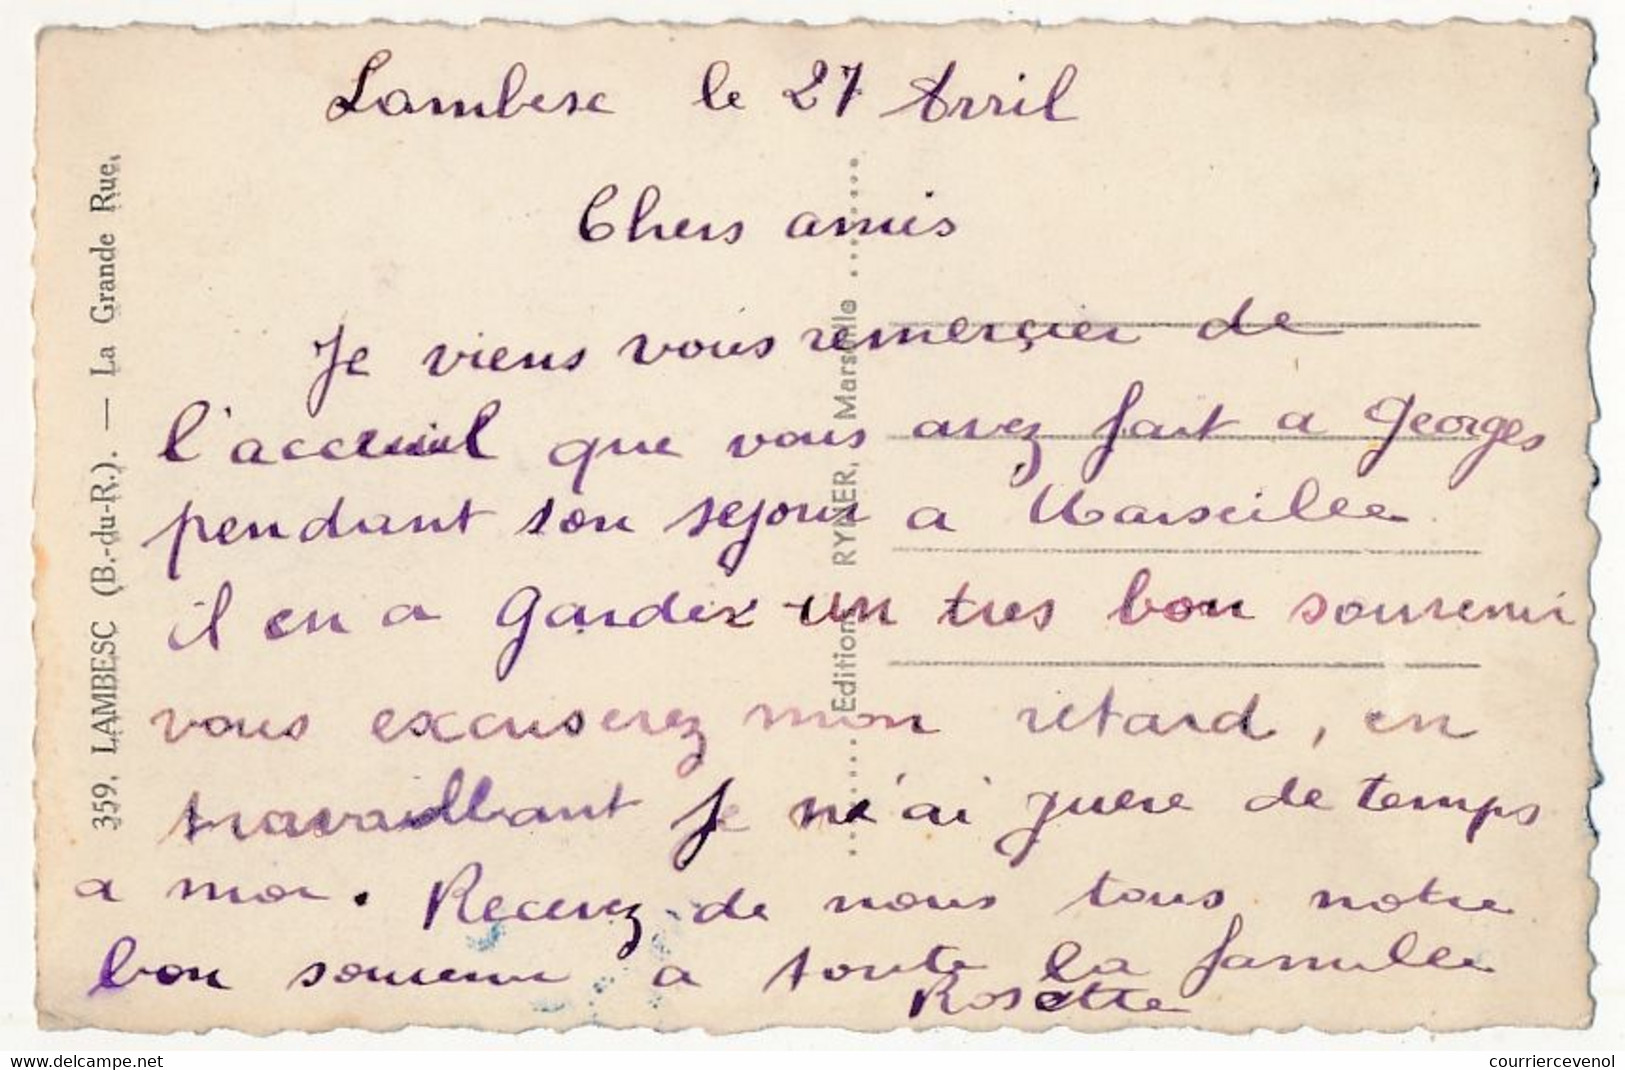 Lambesc le 27 Avril
Chers amis
Je viens vous remerçier de
l'accueil que vous avez fait a Georges
pendant son sejour a Marseille
il en a Gardez un tres bon souvenir
vous excuserez mon retard, en
travaillant Je n'ai guere de temps
a moi. Recevez de nous tous notre
bon souvenir a toute la famille
Rosette
359. LAMBESC (B.-du-R.). — La Grande Rue.
Editions RYNER, Marseille
www.delcampe.net
courriercevenol